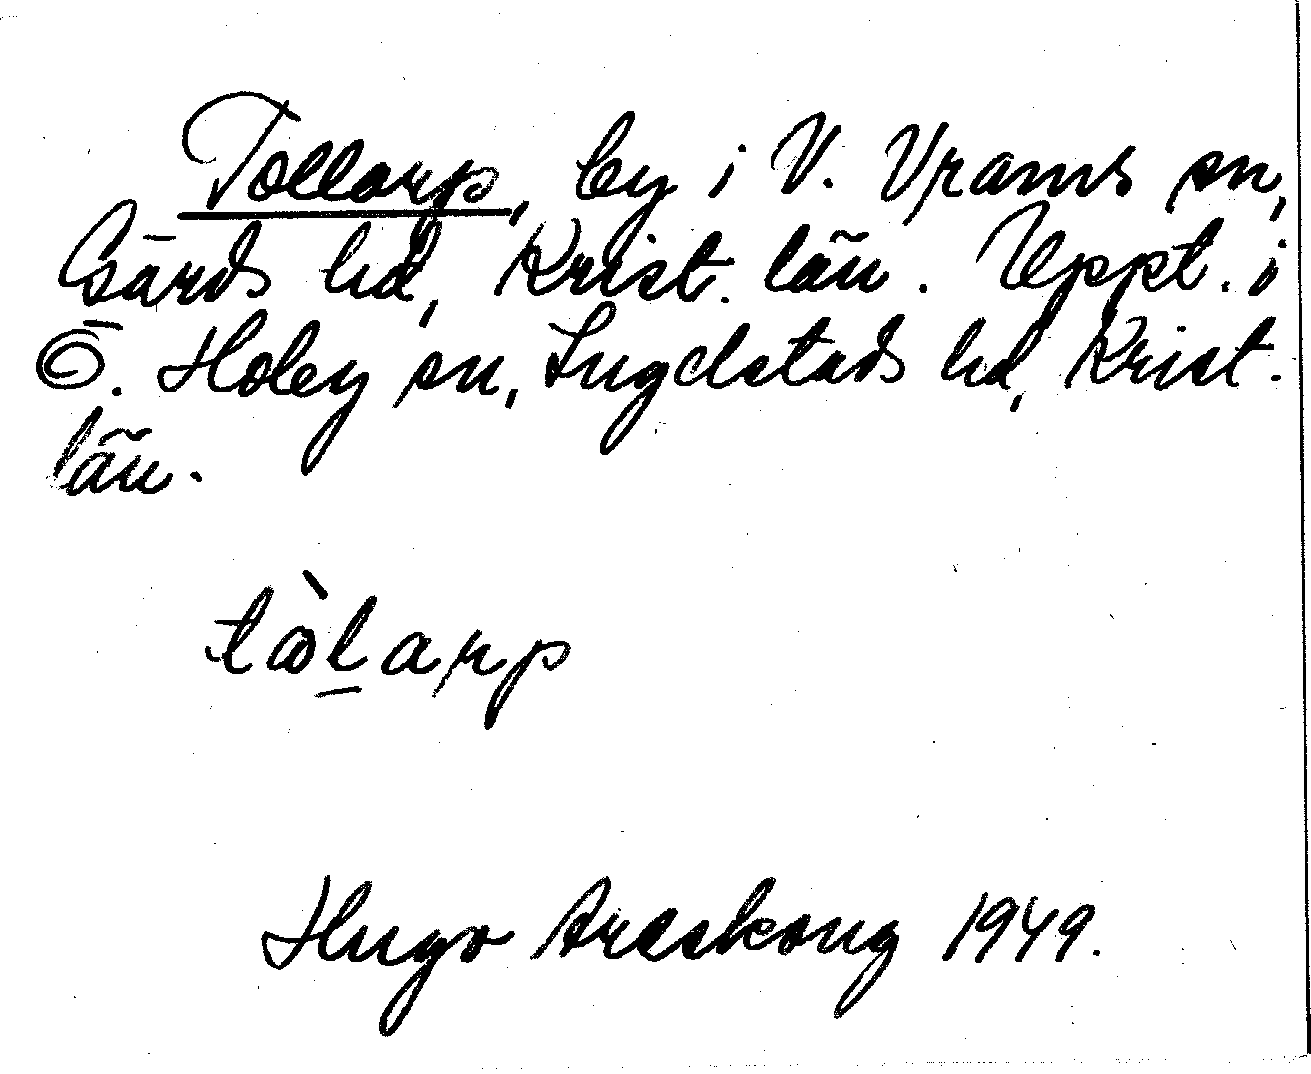 Tollarp, by i V. Vrams sn,
Gärds hd, Krist. län. Uppt. i
Ö. Hoby sn, Ingelstads hd, Krist.
län.
tòl̲arp
Hugo Areskoug 1949.